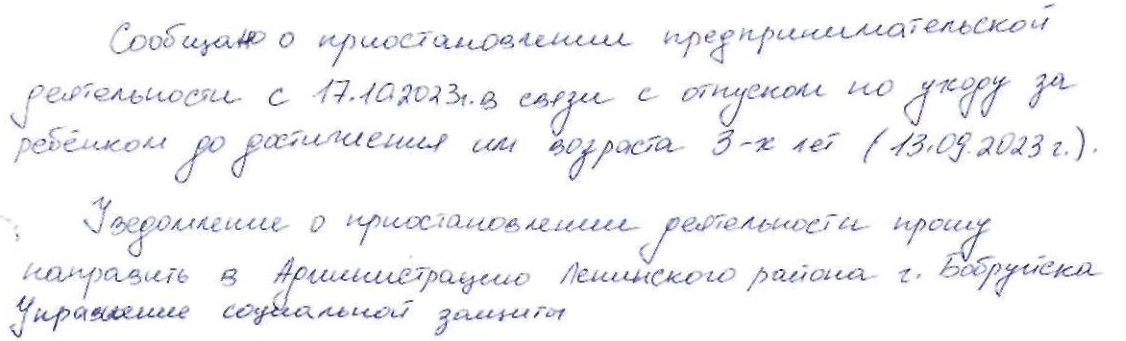 Сообщаю о приостановлении предпринимательской
деятельности с 17.10.2023г. в связи с отпуском по уходу за
ребёнком до достижения им возраста 3-х лет (13.09.2023г.).
Уведомление о приостановлении деятельности прошу
направить в Администрацию Ленинского района г. Бобруйска
Управление социальной защиты